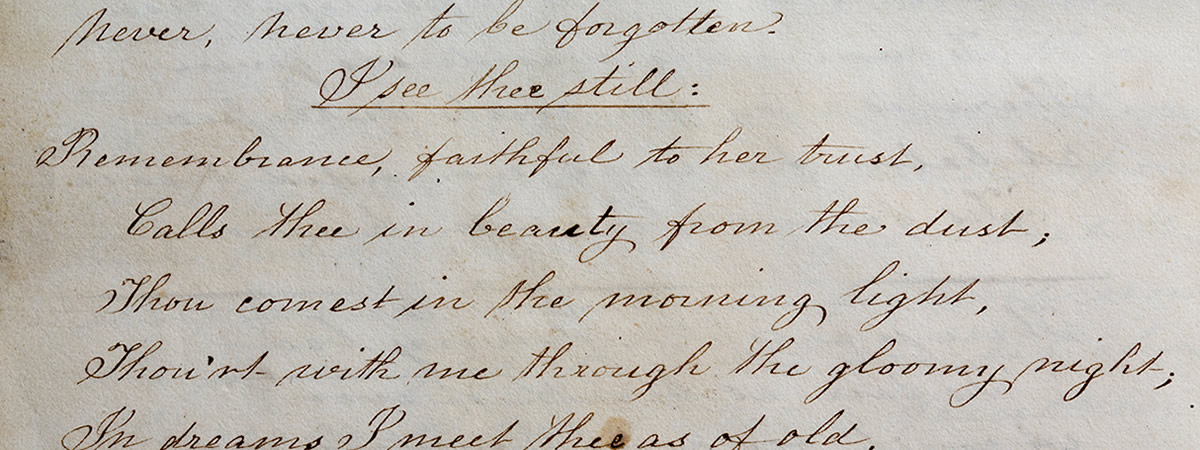 never, never to be forgotten.
I see thee still:
Remembrance, faithful to her trust,
Calls thee in beauty from the dust;
Thou comest in the morning light,
Thou'rt with me through the gloomy night;
In dreams I meet thee as of old,